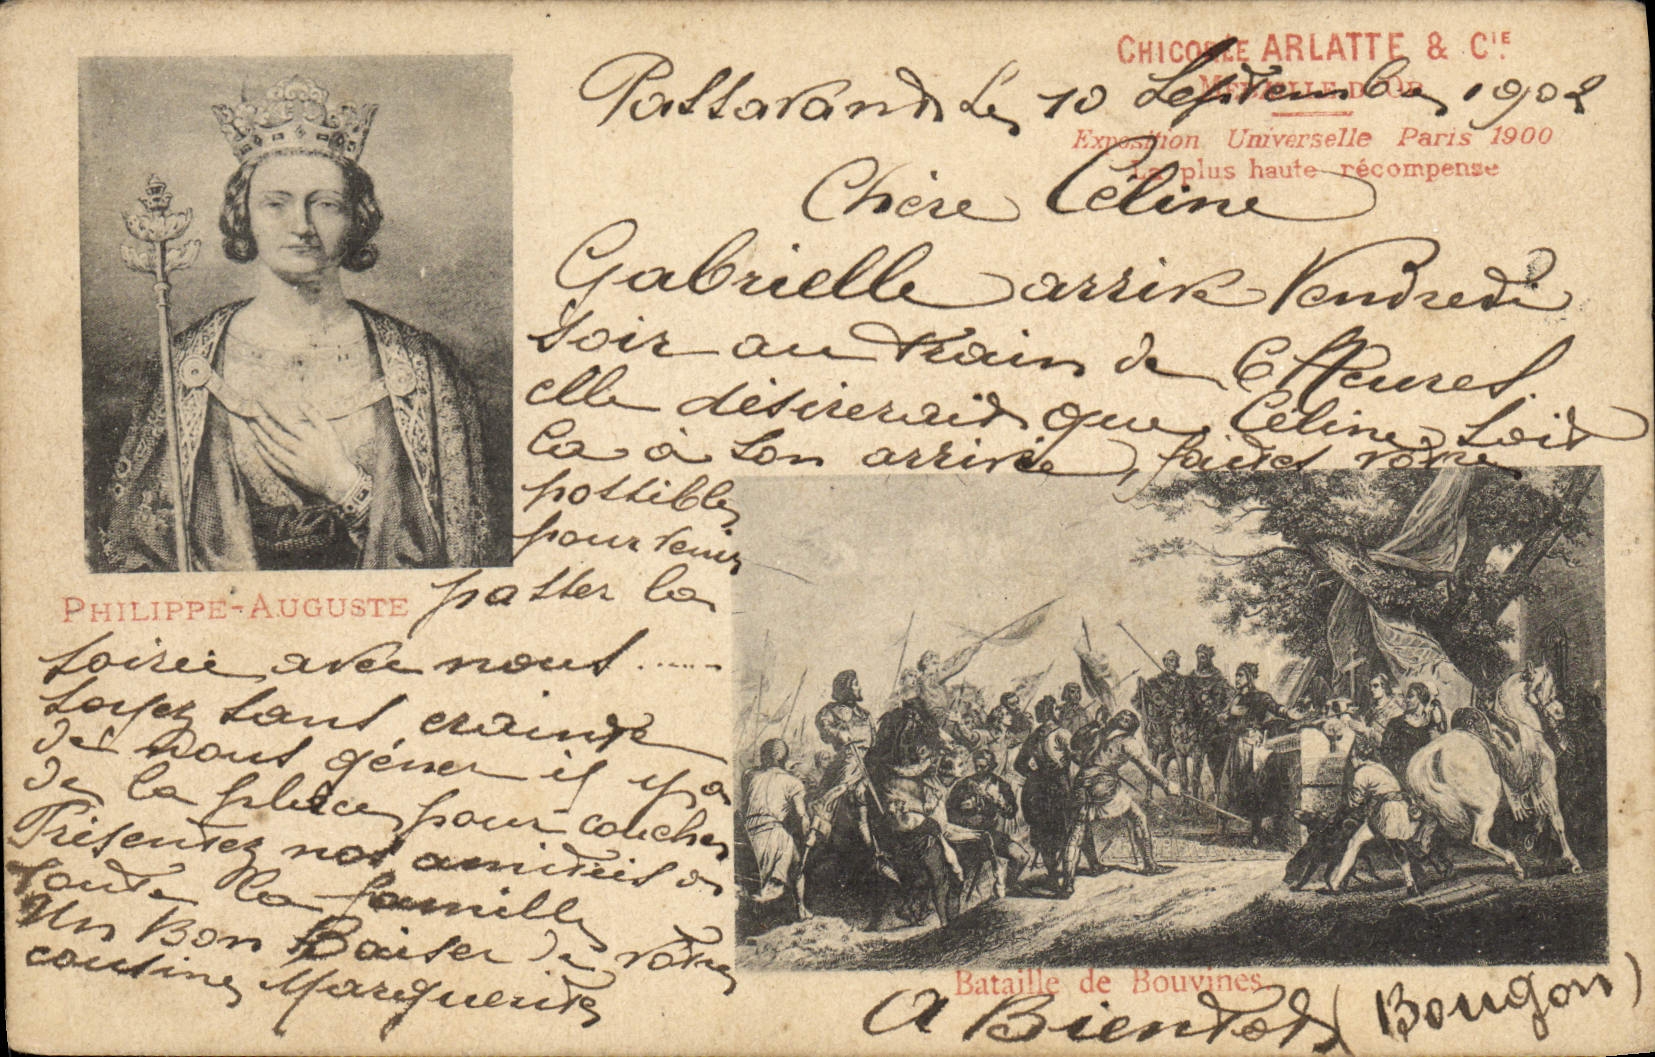 CHICORÉE ARLATTE & CIE
MÉDAILLE D'OR
Exposition Universelle Paris 1900
La plus haute récompense
Passavant Le 10 Septembre 1902
Chère Céline
Gabrielle arrive Vendredi
soir au train de 6 Heures
elle désirerait que Céline soit
la à son arrivée, faites votre
possible
pour venir
passer la
PHILIPPE-AUGUSTE
soirée avec nous......
soyez sans crainte
de nous géner il y a
de la place pour coucher
Présentez nos amitiés a
toute la famille
Un Bon Baiser de votre
cousine Marguerite
Bataille de Bouvines
A Bientot (Bougon)